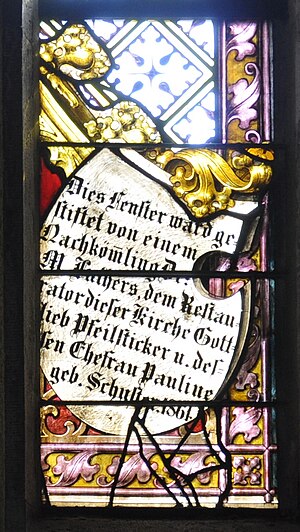 Dies Fenster ward ge-
stiftet von einem
Nachkömling D.
M. Luthers, dem Restau-
rator dieser Kirche Gott-
lieb Pfeilsticker u. des-
sen Ehefrau Pauline
geb. Schuster 1861